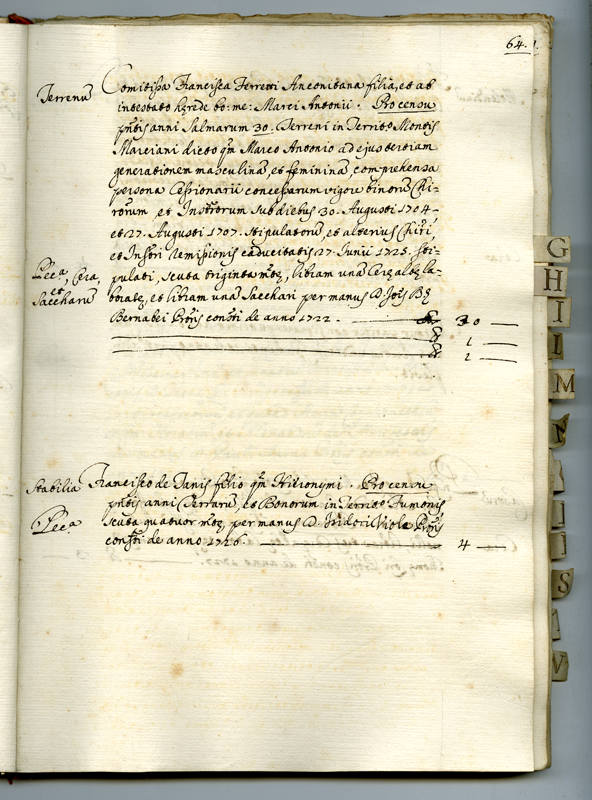 64.
Terrenũ
Comitissa Francisca Ferreti Anconitana filia, et ab
intestato hęrede bo: me: Marci Antonii. Pro censu
pñtis anni Salmarum 30. Terreni in Territ.o Montis
Marciani dicto qm̃ Marco Antonio ad ejus tertiam
generationem masculinã, et femininã, comprehensa
persona Cessionarii concessarum vigore binorũ Chi-
rorum, et Instrorum sub diebus 30. Augusti 1704,
et 27. Augusti 1707. stipulatorũ, et alterius Chiri,
et Instri remissionis caducitatis 27. Junii 1725. sti-
Pecũa, Cera,
et
Saccharũ
pulati, scuta triginta mtę, libram unã Cerę albę la-
boratę, et libram unã Sacchari per manus D. Jois
Bernabei consti de anno 1722. 30
1
1
Stabilia
Francisco de Janis filio qm̃ Hieronymi. Pro censu
pñtis anni Terrarũ, et Bonorum in Territ.o Fumonis
scuta quatuor mtę, per manus D. Isidori Viola
consti de anno 1726. 4
G
H
I
L
M
S
V